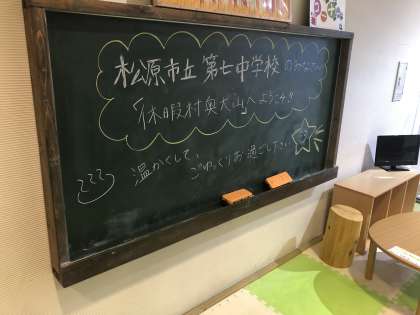 松原市立 第七中学校 のみなさん
「休暇村奥大山」へようこそ!!
温かくして、
ごゆっくりお過ごし下さい